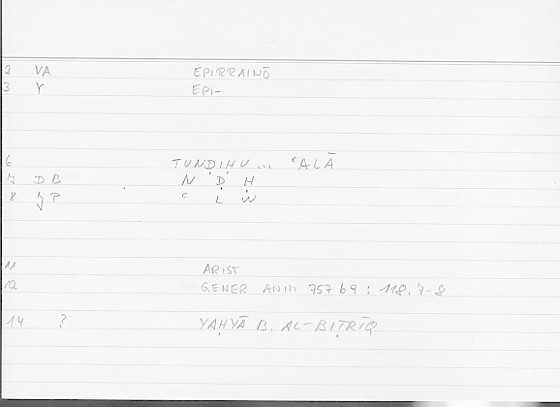 2 VA EPIRRAINŌ
3 Y EPI-
6 TUNḌIḤU ... ʿALĀ
7 DB N Ḍ Ḥ
8 P ʿ L W
11 ARIST
12 GENER ANIM 757 b 9 : 118, 7-8
14 ? YAḤYĀ B. AL-BIṬRĪQ